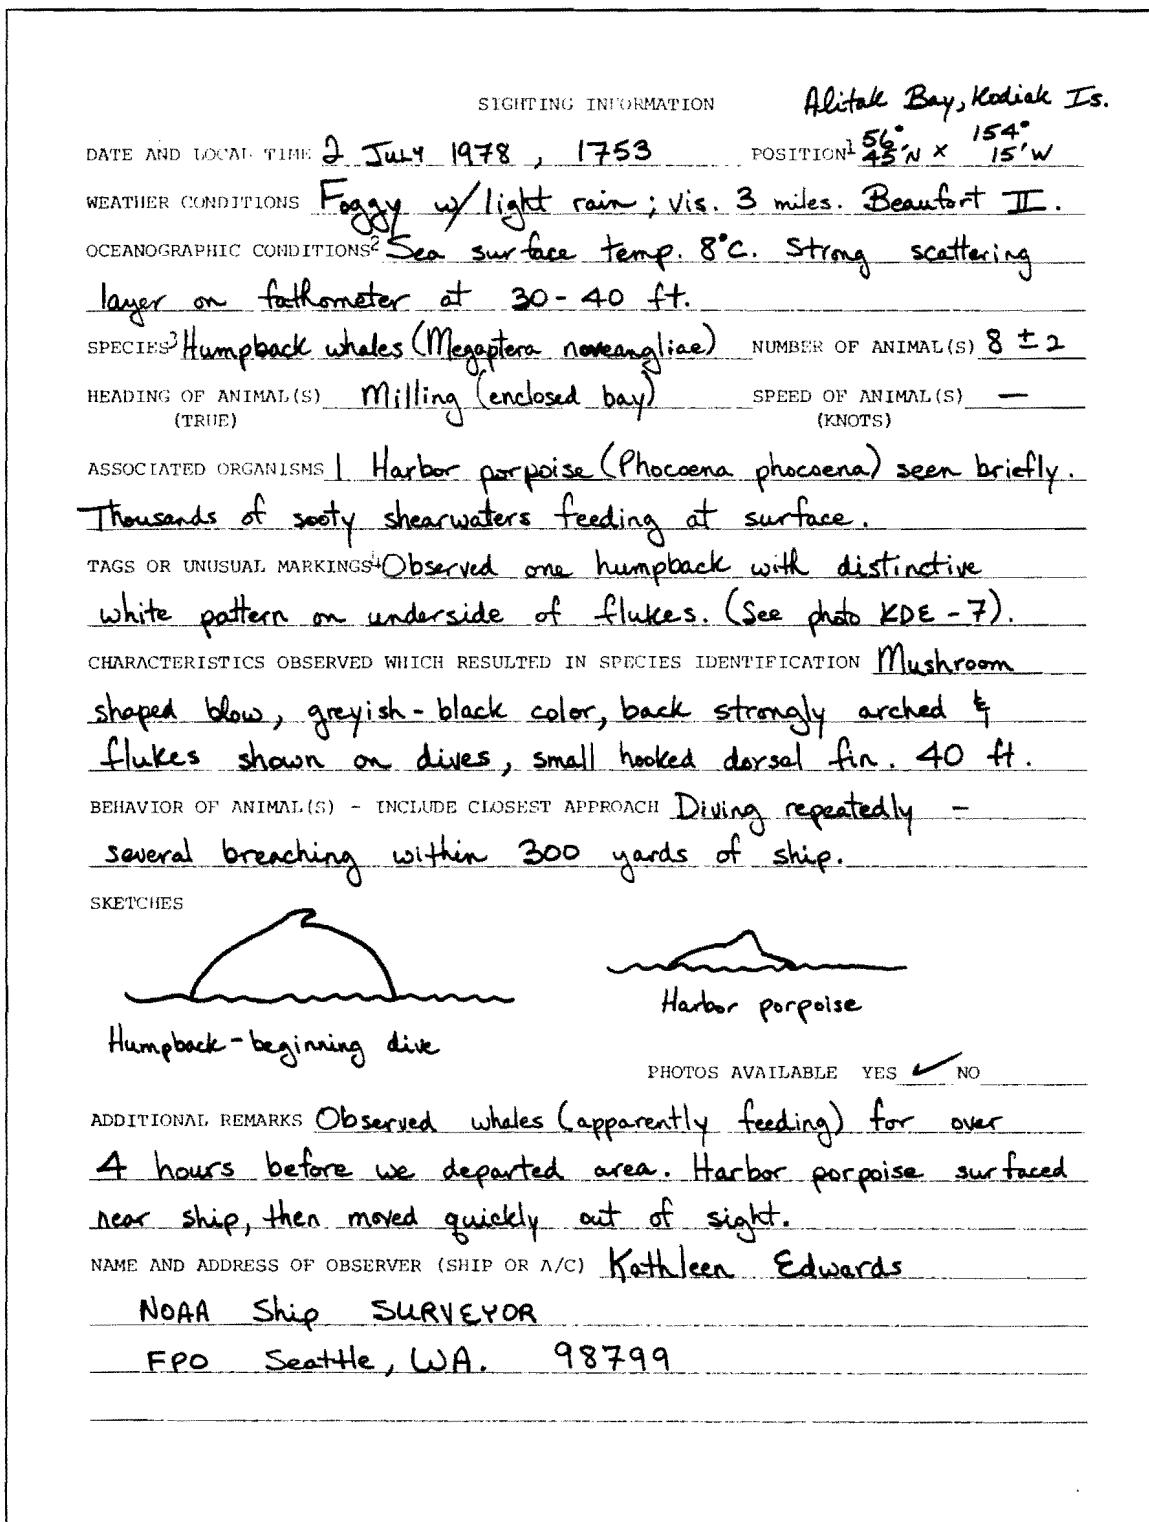 SIGHTING INFORMATION Alitak Bay, Kodiak Is.
DATE AND LOCAL TIME 2 July 1978, 1753 POSITION1 56° 45'N x 154° 15'W
WEATHER CONDITIONS Foggy w/light rain; vis. 3 miles. Beaufort II.
OCEANOGRAPHIC CONDITIONS2 Sea surface temp. 8°C. Strong scattering
layer on fathometer at 30-40 ft.
SPECIES3 Humpback whales (Megaptera noveangliae) NUMBER OF ANIMAL(S) 8 ± 2
HEADING OF ANIMAL(S) Milling (enclosed bay) SPEED OF ANIMAL(S) —
(TRUE) (KNOTS)
ASSOCIATED ORGANISMS 1 Harbor porpoise (Phocoena phocoena) seen briefly.
Thousands of sooty shearwaters feeding at surface.
TAGS OR UNUSUAL MARKINGS4 Observed one humpback with distinctive
white pattern on underside of flukes. (See photo KDE-7).
CHARACTERISTICS OBSERVED WHICH RESULTED IN SPECIES IDENTIFICATION Mushroom
shaped blow, greyish-black color, back strongly arched &
flukes shown on dives, small hooked dorsal fin. 40 ft.
BEHAVIOR OF ANIMAL(S) - INCLUDE CLOSEST APPROACH Diving repeatedly -
several breaching within 300 yards of ship.
SKETCHES
Harbor porpoise
Humpback-beginning dive
PHOTOS AVAILABLE YES ✓ NO
ADDITIONAL REMARKS Observed whales (apparently feeding) for over
4 hours before we departed area. Harbor porpoise surfaced
near ship, then moved quickly out of sight.
NAME AND ADDRESS OF OBSERVER (SHIP OR A/C) Kathleen Edwards
NOAA Ship SURVEYOR
FPO Seattle, WA. 98799